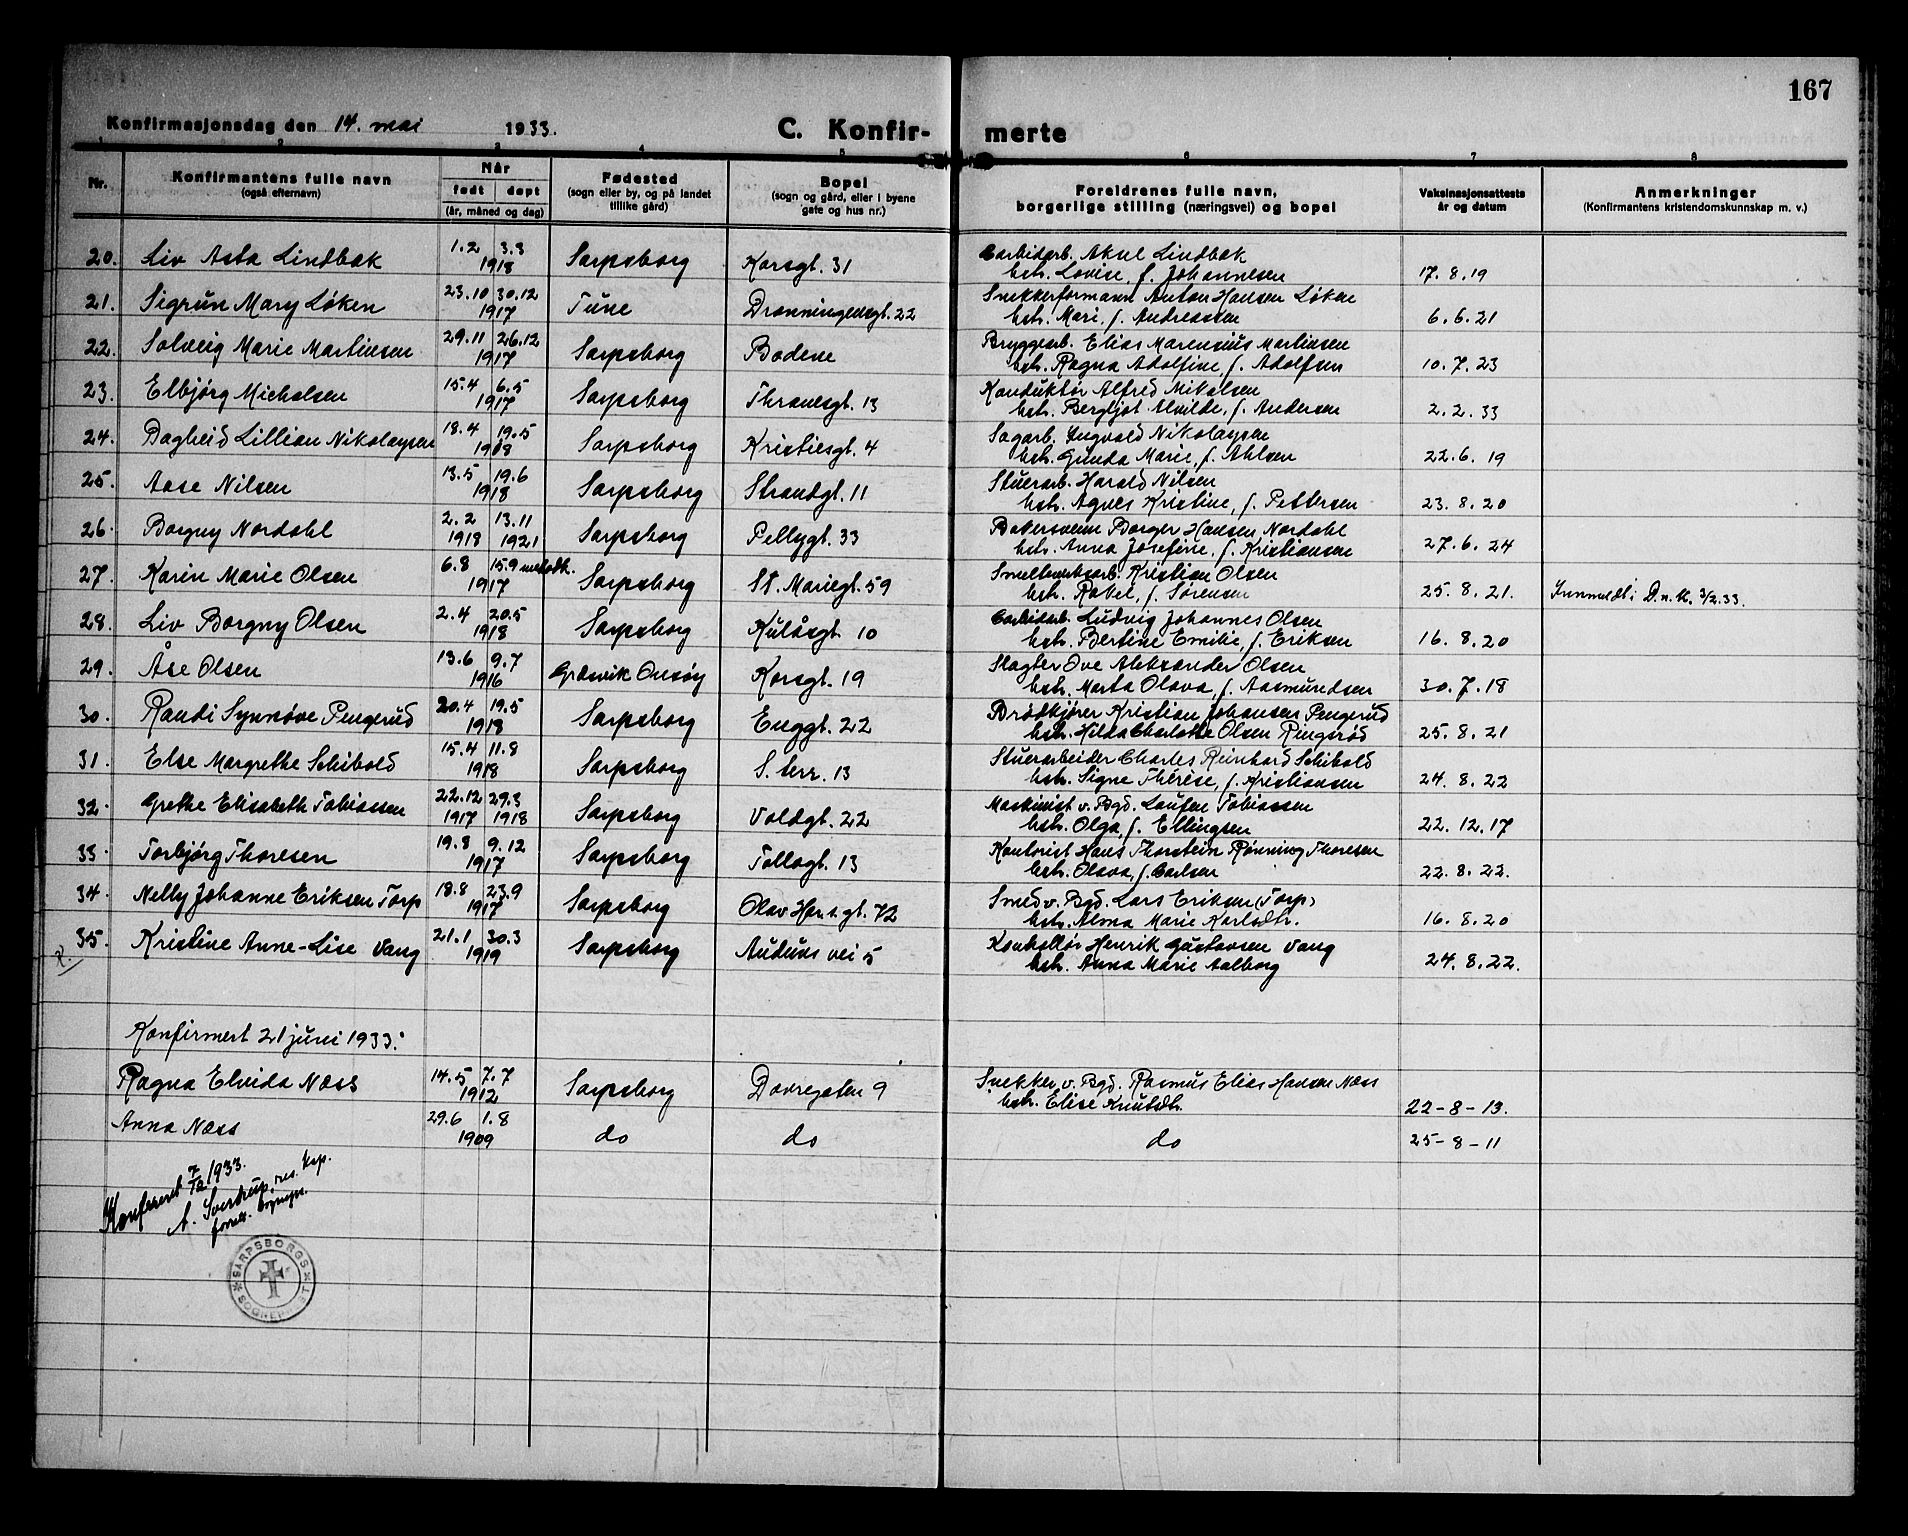 167
Konfirmasjonsdag den 14. mai 1933. C. Konfir- merte
1 2 3 4 5 6 7 8
Nr. Konfirmantens fulle navn (også efternavn) Når født døpt (år, måned og dag) Fødested (sogn eller by, og på landet tillike gård) Bopel (sogn og gård, eller i byene gate og hus nr.) Foreldrenes fulle navn, borgerlige stilling (næringsvei) og bopel Vaksinasjonsattests år og datum Anmerkninger (Konfirmantens kristendomskunnskap m. v.)
20. Liv Asta Lindbæk 1.2 3.3 1918 Sarpsborg Korsgt. 31 Carbidarb. Aksel Lindbæk
hstr. Lovise, f. Johannesen 17.8.19
21. Sigrun Mary Løken 23.10 30.12 1917 Tune Dronningensgt. 22 Snekkerformann Anton Hansen Løken
hstr. Mari, f. Andreassen 6.6.21
22. Solveig Marie Martinsen 29.11 26.12 1917 Sarpsborg Bodene Bryggearb. Elias Marensius Martinsen
hstr. Ragna Adolfine, f. Adolfsen 10.7.23
23. Elbjørg Michalsen 15.4 6.5 1917 Sarpsborg Thranesgt. 13 Konduktør Alfred Mikalsen
hstr. Bergljot Alvilde, f. Andersen 2.2.33
24. Dagheid Lillian Nikolaysen 18.4 19.5 1918 Sarpsborg Kristiesgt. 4 Sagarb. Ingvald Nikolaysen
hstr. Gunda Marie, f. Ahlsen 22.6.19
25. Aase Nilsen 13.5 19.6 1918 Sarpsborg Strandgt. 11 Stuerarb. Harald Nilsen
hstr. Agnes Kristine, f. Pettersen 23.8.20
26. Borgny Nordahl 2.2 1918 13.11 1921 Sarpsborg Pellygt. 33 Bakersvenn Borger Hansen Nordahl
hstr. Anna Josefine, f. Kristiansen 27.6.24
27. Karin Marie Olsen 6.8 15.9 metodk. 1917 Sarpsborg St. Mariegt. 59 Smelteverksarb. Kristian Olsen
hstr. Rakel, f. Sørensen 25.8.21. Innmeldt i D.n.K. 3/2.33.
28. Liv Borgny Olsen 2.4 20.5 1918 Sarpsborg Kulåsgt. 10 Carbidarb. Ludvig Johannes Olsen
hstr. Bertine Emilie, f. Eriksen 16.8.20
29. Åse Olsen 13.6 9.7 1916 Græsvik Onsøy Korsgt. 19 Slagter Ove Aleksander Olsen
hstr. Marta Olava, f. Aasmundsen 30.7.18
30. Randi Synnøve Pengerud 20.4 19.5 1918 Sarpsborg Enggt. 22 Brødkjører Kristian Johansen Pengerud
hstr. Hilda Charlotte Olsen Ringsrød 25.8.21
31. Else Margrethe Schibold 15.4 11.8 1918 Sarpsborg S. terr. 13 Stuerarbeider Charles Reinhard Schibold
hstr. Signe Thérèse, f. Kristiansen 24.8.22
32. Grethe Elisabeth Tobiassen 22.12 1917 29.3 1918 Sarpsborg Voldgt. 22 Maskinist v. Bgd. Laufen Tobiassen
hstr. Olga, f. Ellingsen 22.12.17
33. Torbjørg Thoresen 19.8 9.12 1917 Sarpsborg Tollogt. 13 Kontorist Hans Thorstein Rønning Thoresen
hstr. Olava, f. Carlsen 22.8.22.
34. Nelly Johanne Eriksen Torp 18.8 23.9 1917 Sarpsborg Olav Har.s gt. 72 Smed v. Bgd. Lars Eriksen (Torp)
hstr. Alma Marie Karlsdtr. 16.8.20
35. Kristine Anne-Lise Vang 21.1 30.3 1919 Sarpsborg Auduns vei 5 Kontrollør Henrik Gustavsen Vang
hstr. Anna Marie Aalborg 24.8.22.
Konfirmert 21 juni 1933:
Ragna Elvida Næss 14.5 7.7 1912 Sarpsborg Dovregaten 9 Snekker v. Bgd. Rasmus Elias Hansen Næss
hstr. Elise Knutsdtr. 22-8-13.
Anna Næss 29.6 1.8 1909 do do do 25-8-11
Konfereret 7/12 1933.
A. Sverdrup, res. kap.
SARPSBORGS SOGNEPREST